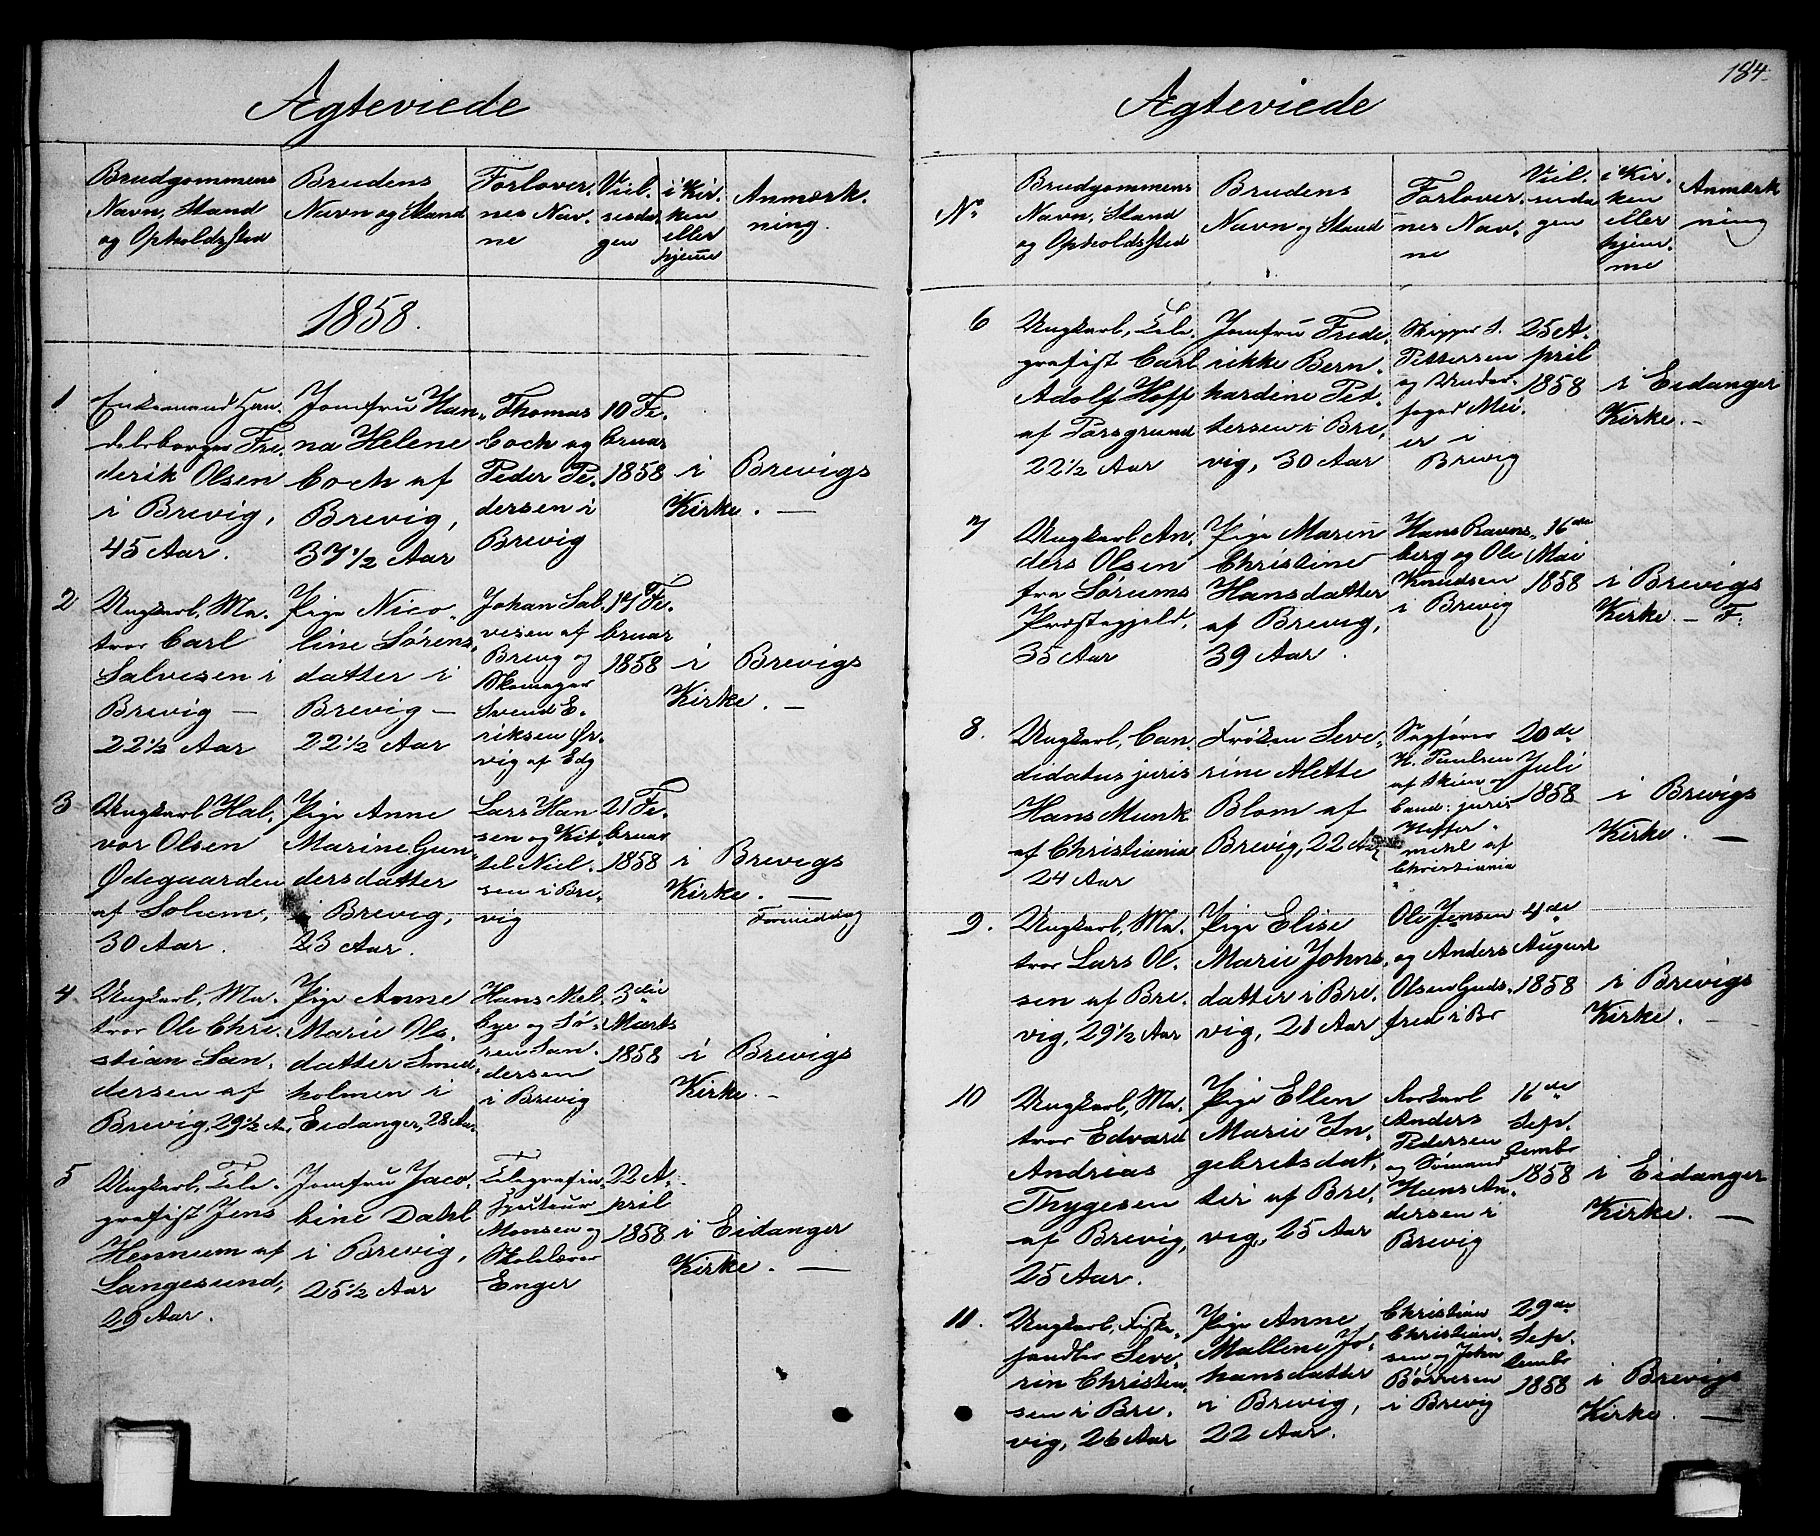 Ægteviede
Brudgommens
Navn, Stand
og Opholdssted
Brudens
Navn og Stand
Forlover-
nes Nav-
ne
Viel-
sesda-
gen
i Kir-
ken
eller
hjemme
Anmærk-
ning.
1858.
1
Enkemand Han-
delsborger Fre-
derik Olsen
i Brevig,
45 Aar.
Jomfru Han-
na Helene
Coch af
Brevig,
37 1/2 Aar
Thomas
Coch og
Peder Pe-
dersen i
Brevig
10 Fe-
bruar
1858
i Brevigs
Kirke. —
2
Ungkarl, Ma-
tros Carl
Salvesen i
Brevig —
22 1/2 Aar
Pige Nico-
line Sørens-
datter i
Brevig —
22 1/2 Aar
Johan Sal-
vesen af
Brevig og
Skomager
Svend E-
riksen Ør-
vig af Edg
17 Fe-
bruar
1858
i Brevigs
Kirke. —
3
Ungkarl Hal-
vor Olsen
Ødegaarden
af Solum,
30 Aar.
Pige Anne
Marine Gun-
dersdatter
i Brevig,
23 Aar.
Lars Han
sen og Kit-
tel Niel-
sen i Bre-
vig
21 Fe-
bruar
1858
i Brevigs
Kirke. —
Formiddag
4
Ungkarl, Ma-
tros Ole Chri-
stian San-
dersen af
Brevig, 29 1/2 A.
Pige Anne
Marie Ols-
datter Smed-
holmen i
Eidanger, 28 Aar
Hans Mel-
bye og Sø-
ren San-
dersen
i Brevig
3die
Marts
1858
i Brevigs
Kirke. —
5
Ungkarl, Tele-
grafist Jens
Hennum af
Langesund,
29 Aar.
Jomfru Jaco-
bine Dahl
i Brevig,
25 1/2 Aar
Telegrafin-
Monsen og
Skolelærer
Enger
22 A-
pril
1858
i Eidanger
Kirke. —
184.
Ægteviede
No
Brudgommens
Navn, Stand
og Opholdssted
Brudens
Navn og Stand
Forlover-
nes Nav-
ne
Viel-
sesda-
gen
i Kir-
ken
eller
hjem-
me
Anmærk
ning
6
Ungkarl, Tele-
grafist Carl
Adolf Hoff
af Porsgrund
22 1/2 Aar
Jomfru Frede-
rikke Bern-
hardine Pet-
tersen i Bre-
vig, 30 Aar
Skipper S.
Pettersen
og Under-
foged Mei-
er i
Brevig
25 A-
pril
1858
i Eidanger
Kirke. —
7
Ungkarl An-
ders Olsen
fra Sørums
Præstegjeld,
35 Aar
Pige Maren
Christine
Hansdatter
af Brevig,
39 Aar.
Hans Ravns-
berg og Ole
Knudsen
i Brevig
16de
Mai
1858
i Brevigs
Kirke. — F.
8.
Ungkarl, Can-
didatus juris
Hans Munk
af Christiania
24 Aar
Frøken Seve-
rine Alette
Blom af
Brevig, 22 Aar
Sagfører
H. Paulsen
af Skien og
Cand: juris
af
Christiania
20de
Juli
1858
i Brevigs
Kirke. —
9.
Ungkarl, Ma-
tros Lars Ol-
sen af Bre-
vig, 29 1/2 Aar
Pige Elise
Marie Johns-
datter i Bre-
vig, 21 Aar
Ole Jensen
og Anders
Olsen Guds-
fred i Br
4de
August
1858
i Brevigs
Kirke. —
10
Ungkarl, Ma-
tros Edvard
Andreas
Thygesen
af Brevig,
25 Aar.
Pige Ellen
Marie In-
gebretsdat-
ter af Bre-
vig, 25 Aar
Anders
Pedersen
og Sømand
Hans An-
dersen i
Brevig
16de
Sep-
tember
1858
i Eidanger
Kirke. —
11.
Ungkarl, Fiske-
handler Seve-
rin Christen-
sen i Bre-
vig, 26 Aar
Pige Anne
Mallene Jo-
hansdatter
i Brevig,
22 Aar.
Christian
Christian-
sen og John
Børresen
i Brevig
29de
Sep-
tember
1858
i Brevigs
Kirke. —